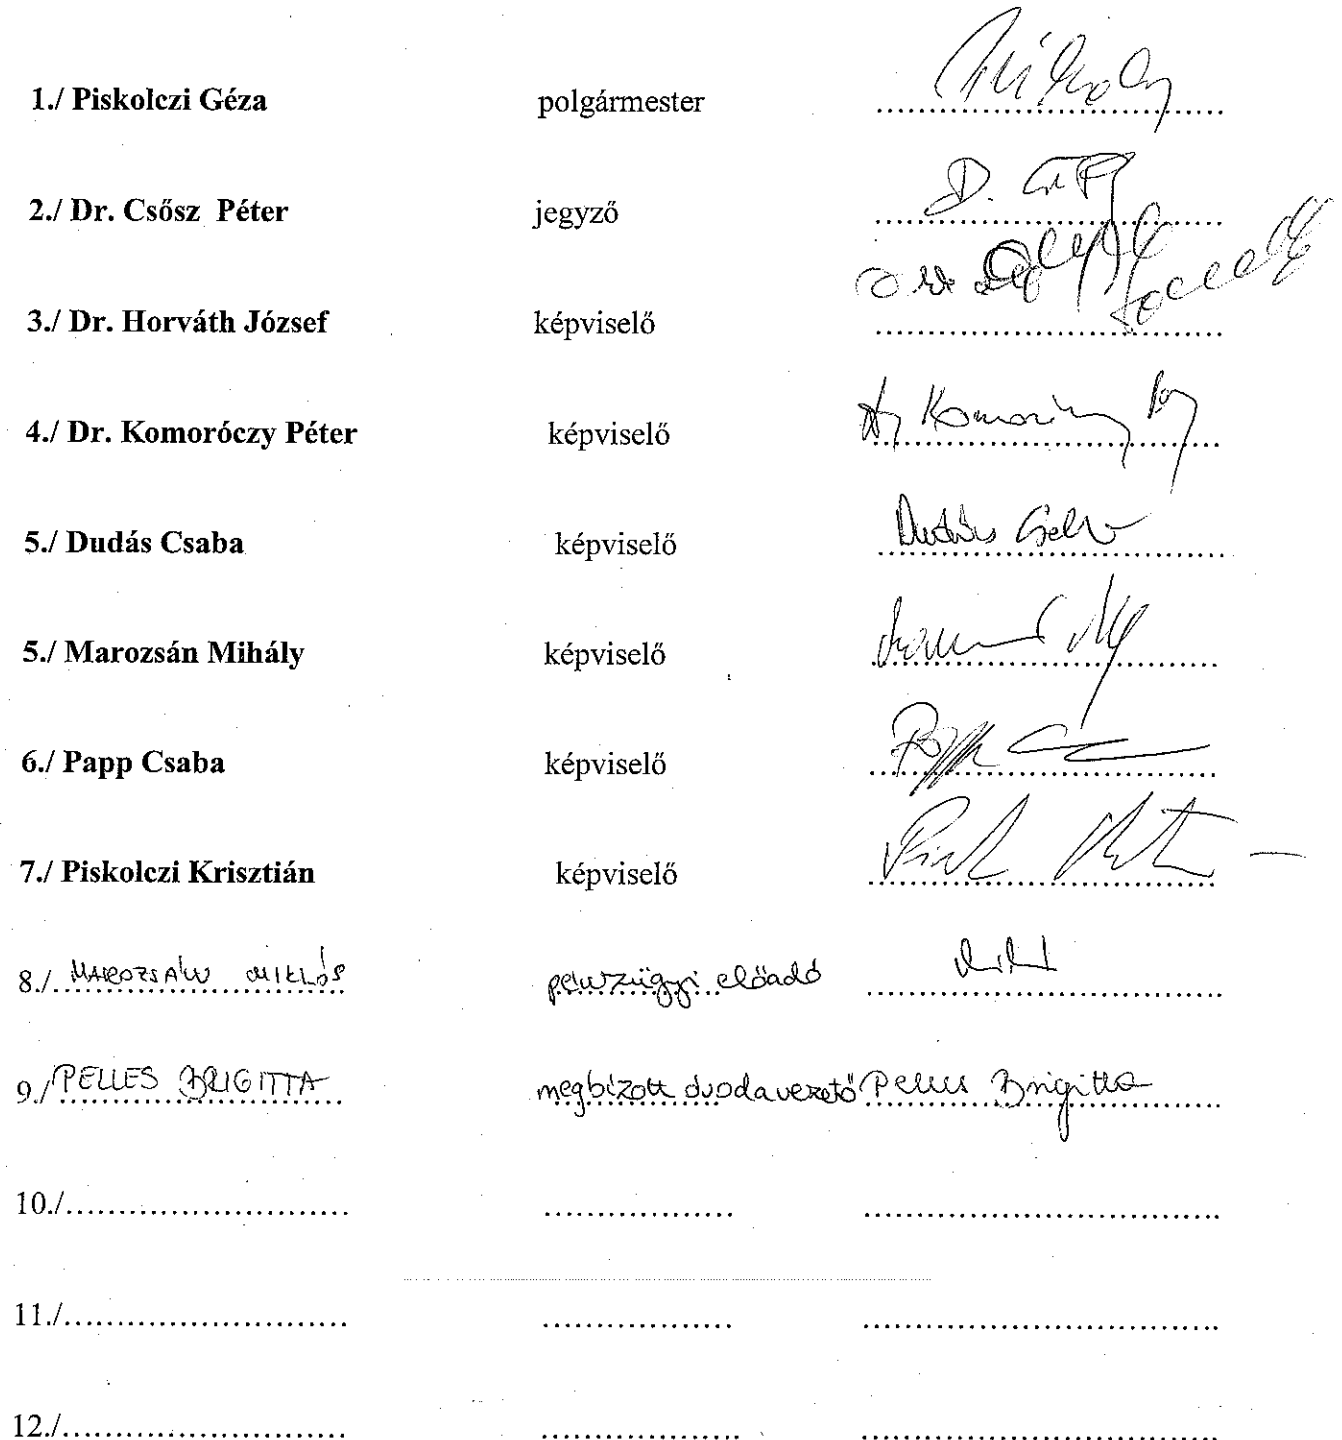 1./ Piskolczi Géza polgármester
2./ Dr. Csősz Péter jegyző
3./ Dr. Horváth József képviselő
4./ Dr. Komoróczy Péter képviselő
5./ Dudás Csaba képviselő Dudás Csaba
5./ Marozsán Mihály képviselő
6./ Papp Csaba képviselő Papp
7./ Piskolczi Krisztián képviselő
8./ MAROZSÁN MIKLÓS pénzügyi előadó
9./ PELLES BRIGITTA megbízott óvodavezető Pelles Brigitta
10./.......................... .................. .................................
11./.......................... .................. .................................
12./.......................... .................. .................................